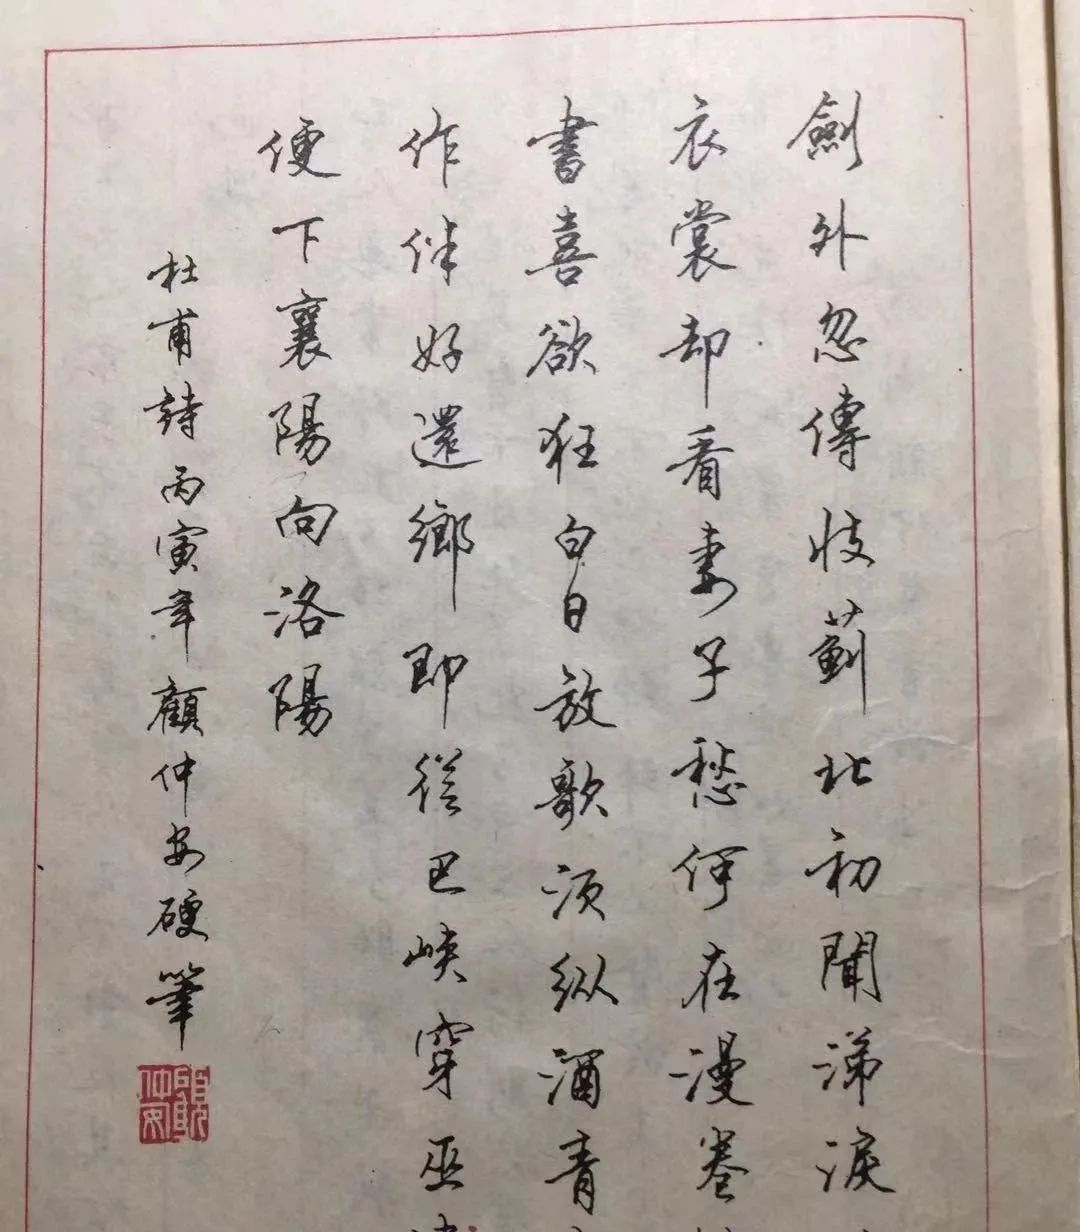 劍外忽傳收薊北初聞涕淚
衣裳却看妻子愁何在漫卷
書喜欲狂白日放歌須纵酒青
作伴好還鄉即從巴峽穿巫
便下襄陽向洛陽
杜甫詩丙寅年顧仲安硬筆
顧仲安